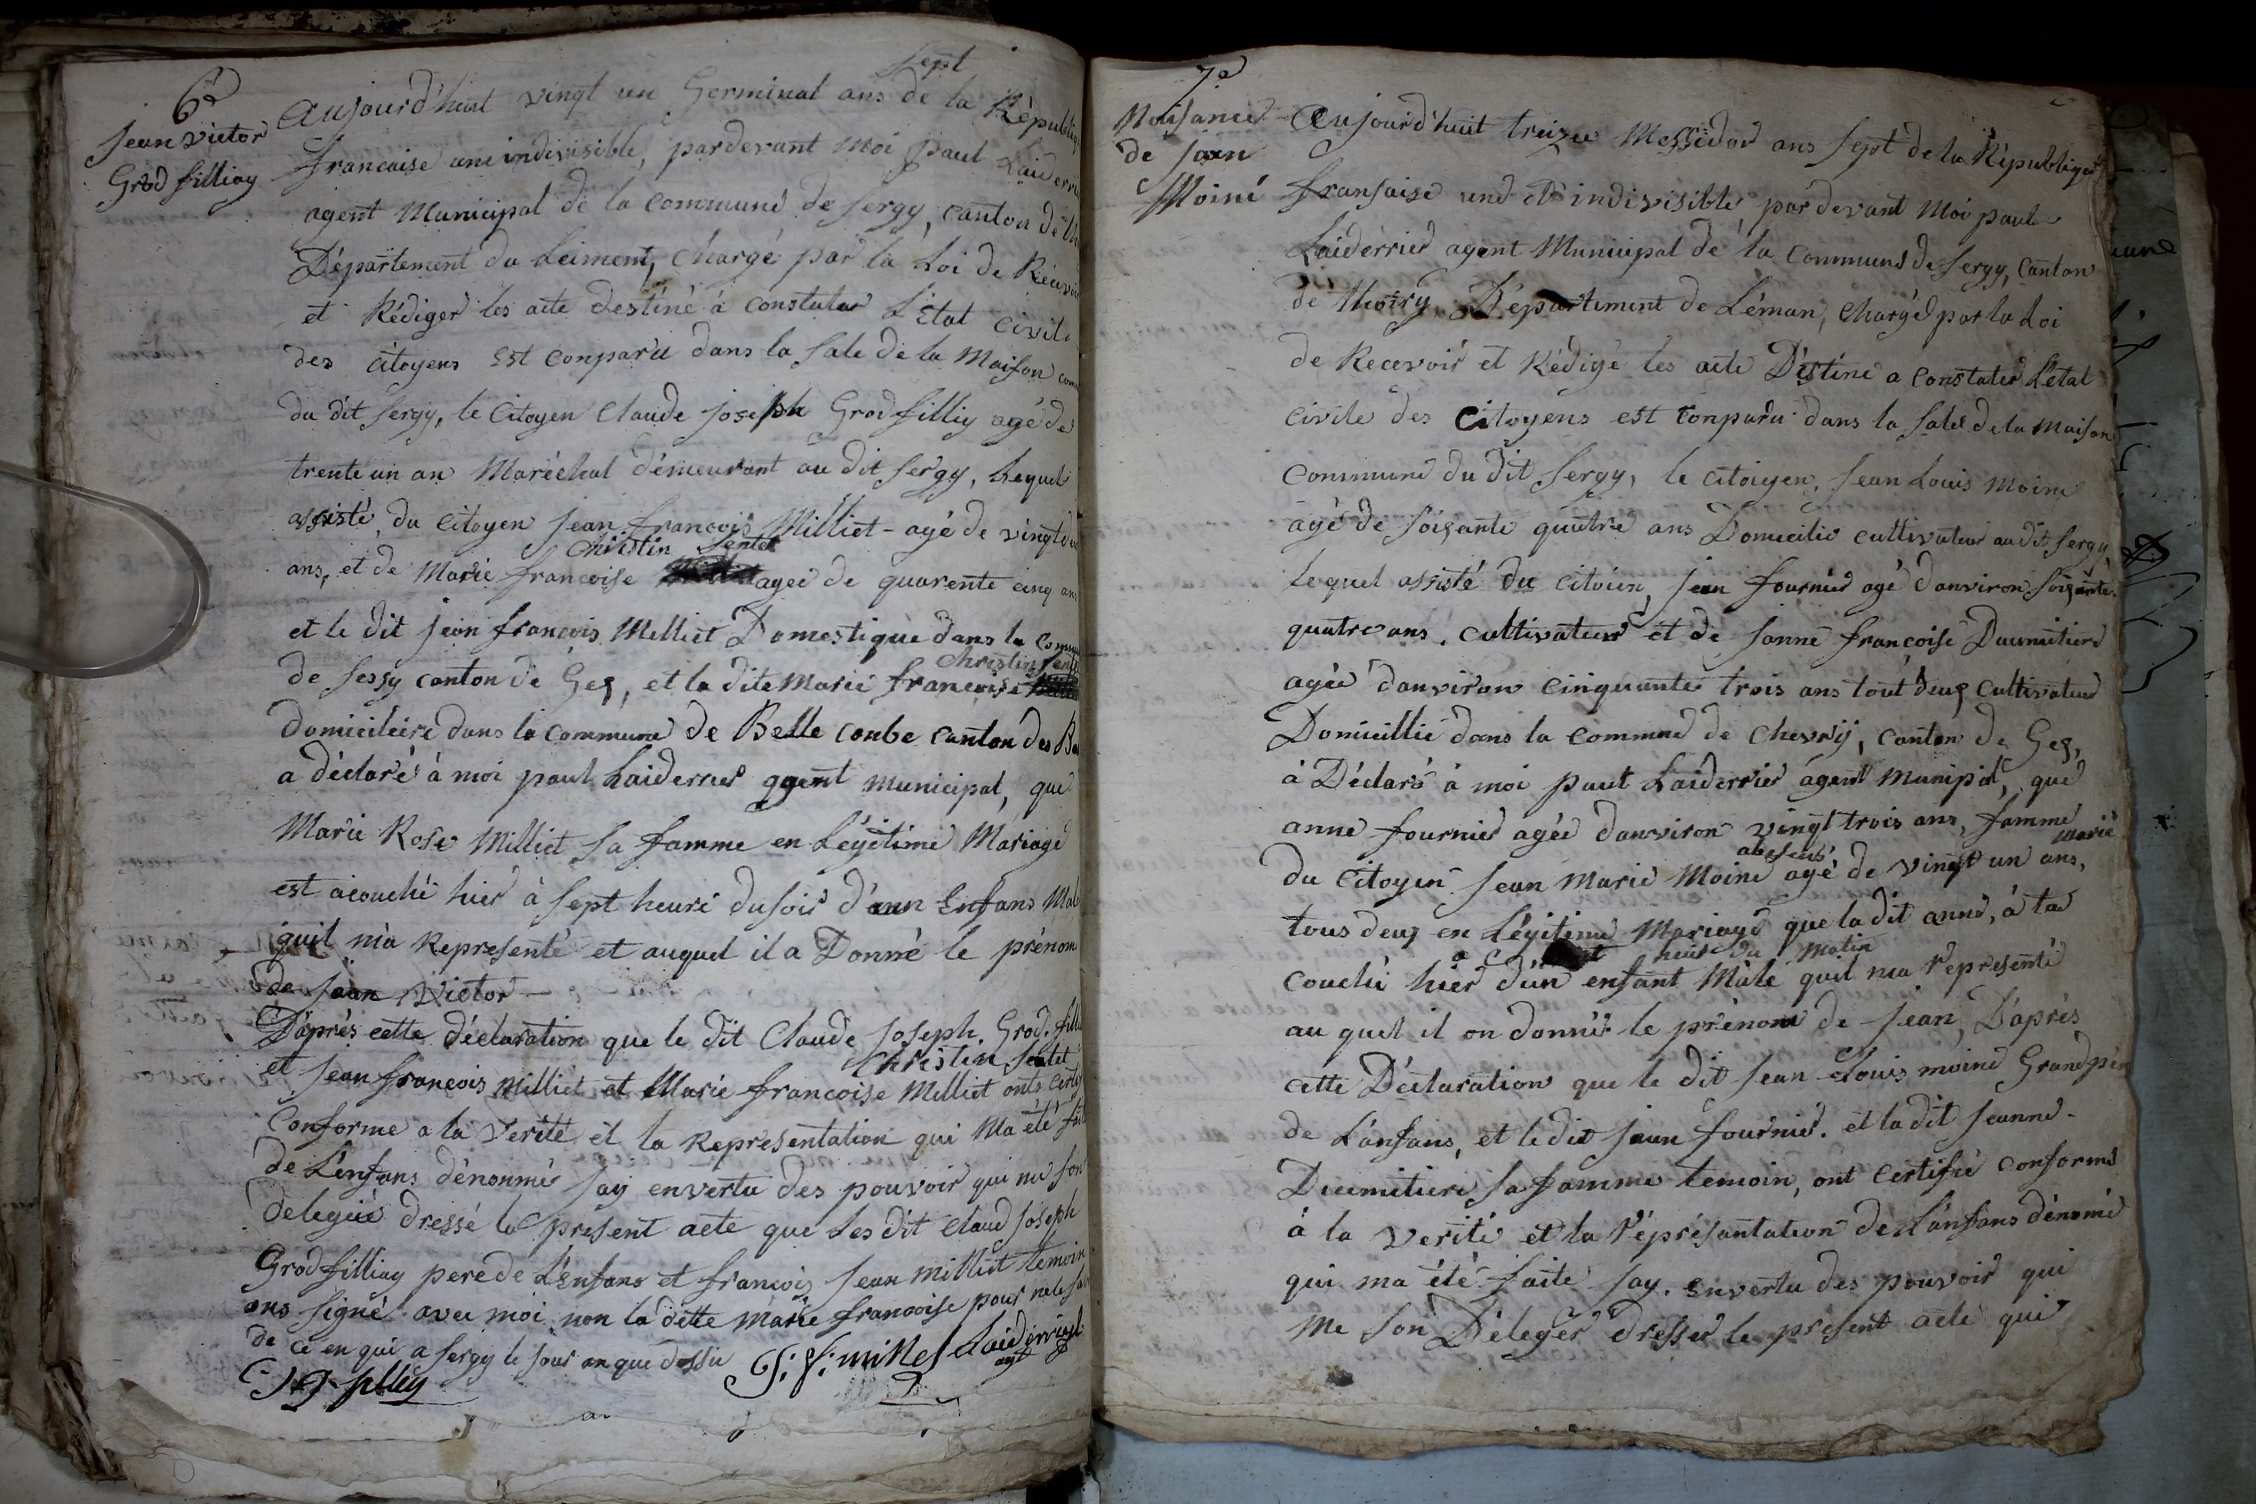 6e
Jean victor
Grod filliay
sept
Aujourd'huit vingt un Germinal ans de la Republiq
francaise une indivisible, pardevant moi paul Laiderri
agent Municipal de la commune de sergy, canton de th
Département du Leiment, chargé par la Loi de Recevoi
et Rédiger les acte destiné à constater L'Etat civile
des citoyens Est conparu dans la sale de la Maison com
du dit sergy, le Citoyen Claude joseph Grod filliy agé de
trente un an Maréchal démeurant au dit sergy, Lequel
assisté, du citoyen jean francois Milliet - agé de vingt
Christin Sentet
ans, et de Marie francoise ageé de quarente cinq ans
et le dit jean francois Milliet Domestique dans la Commu
Christin Sente
de sessy canton de Gex, et la dite Marie francoise
domiciliere dans la commune de Belle conbe canton des
a déclaré à moi paul Laiderrier agent municipal, que
Marie Rose Milliet sa famme en Légitime Mariage
est acouché hier à sept heure du soir d'aun Enfans Mal
quil m'a Representé et auquel il a Donné le prénom
de jean Victor
D'après cette déclaration que le dit Claude Joseph Grod fill
Christin Sentet
et jean francois Milliet et Marie francoise Milliet onts certif
Conforme a la verité et la Representation qui Ma été fait
de L'enfans dénonmé jay envertu des pouvoir qui me son
deleguié dressé le present acte que Les dit Claud Joseph
Grodfilliay pere de L'enfans et francois jean milliet temoin
ons signé avec moi non la dette marie francoise pour ne le
de ce en qui a sergy le jour an que dessu
J: f: millet Laiderrier
agt
7e
Naisance
de jean
Moine
Aujourd'huit treize Messidor ans sept de la Républiqu
fransaise une et indivisible, pardevant Moi paule
Laiderrier agent Municipal de la commune de sergy, Canton
de thoiry Département de Léman, Chargé par la Loi
de Recevoir et Rédigé les acte Déstiné a constater L'état
civile des Citoyens est conparu dans la sale de la Maison
commune du dit sergy, le citoiyen, Jean Louis Moine
agé de soixante quatre ans Domicilié cultivateur au dit sergy
Lequel assisté du citoien, jean fournier agé d'anviron soixante
quatre ans, cultivateur et de Janne françoise Daumitiere
agée d'anviron cinquante trois ans tout deux cultivateur
Domicillié dans la commune de Chevrÿ, canton de Gex,
à Déclaré à moi paul Laiderrier agent Munipal, que
anne fournier agée d'anviron vingt trois ans, famme
absent Marié
du Citoyen Jean Marie Moine agé de vingt un ans,
tous deux en Légitime Mariage que la dit anne, à ta
heure du Matin
couché hier d'un enfant Mâle quil ma representé
au quel il on donné le prénom de jean, D'aprés
cette Déclaration que le dit Jean Louis moine Grandpere
de L'anfans, et le dit jean fournier. et la dit jeanne
Daumitiere sa famme temoin, ont certifié conforme
à la verité et la Réprésantation de L'anfans dénomé
qui ma été faite jay. envertu des pouvoir qui
me son Déleger dresser le présent acte qui